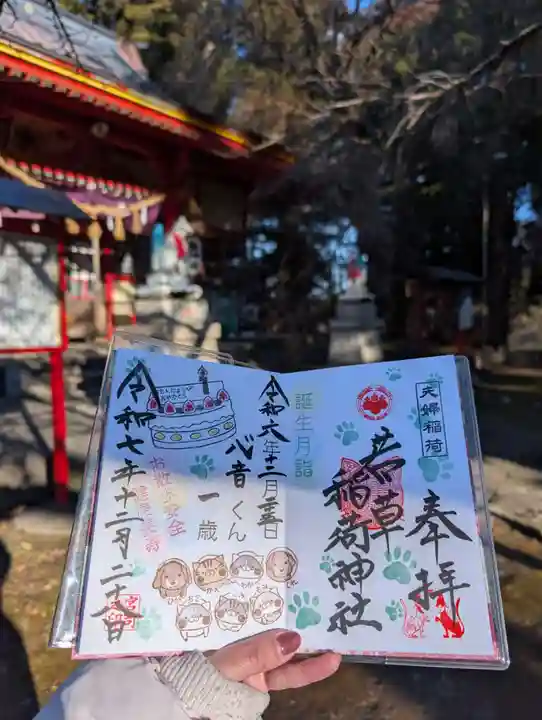 夫婦稲荷
奉拝
若草
稲荷神社
誕生月詣
令和六年十二月
日
心音くん
一歳
おたんじょうび
おめでとう
令和七年十二月二十八日